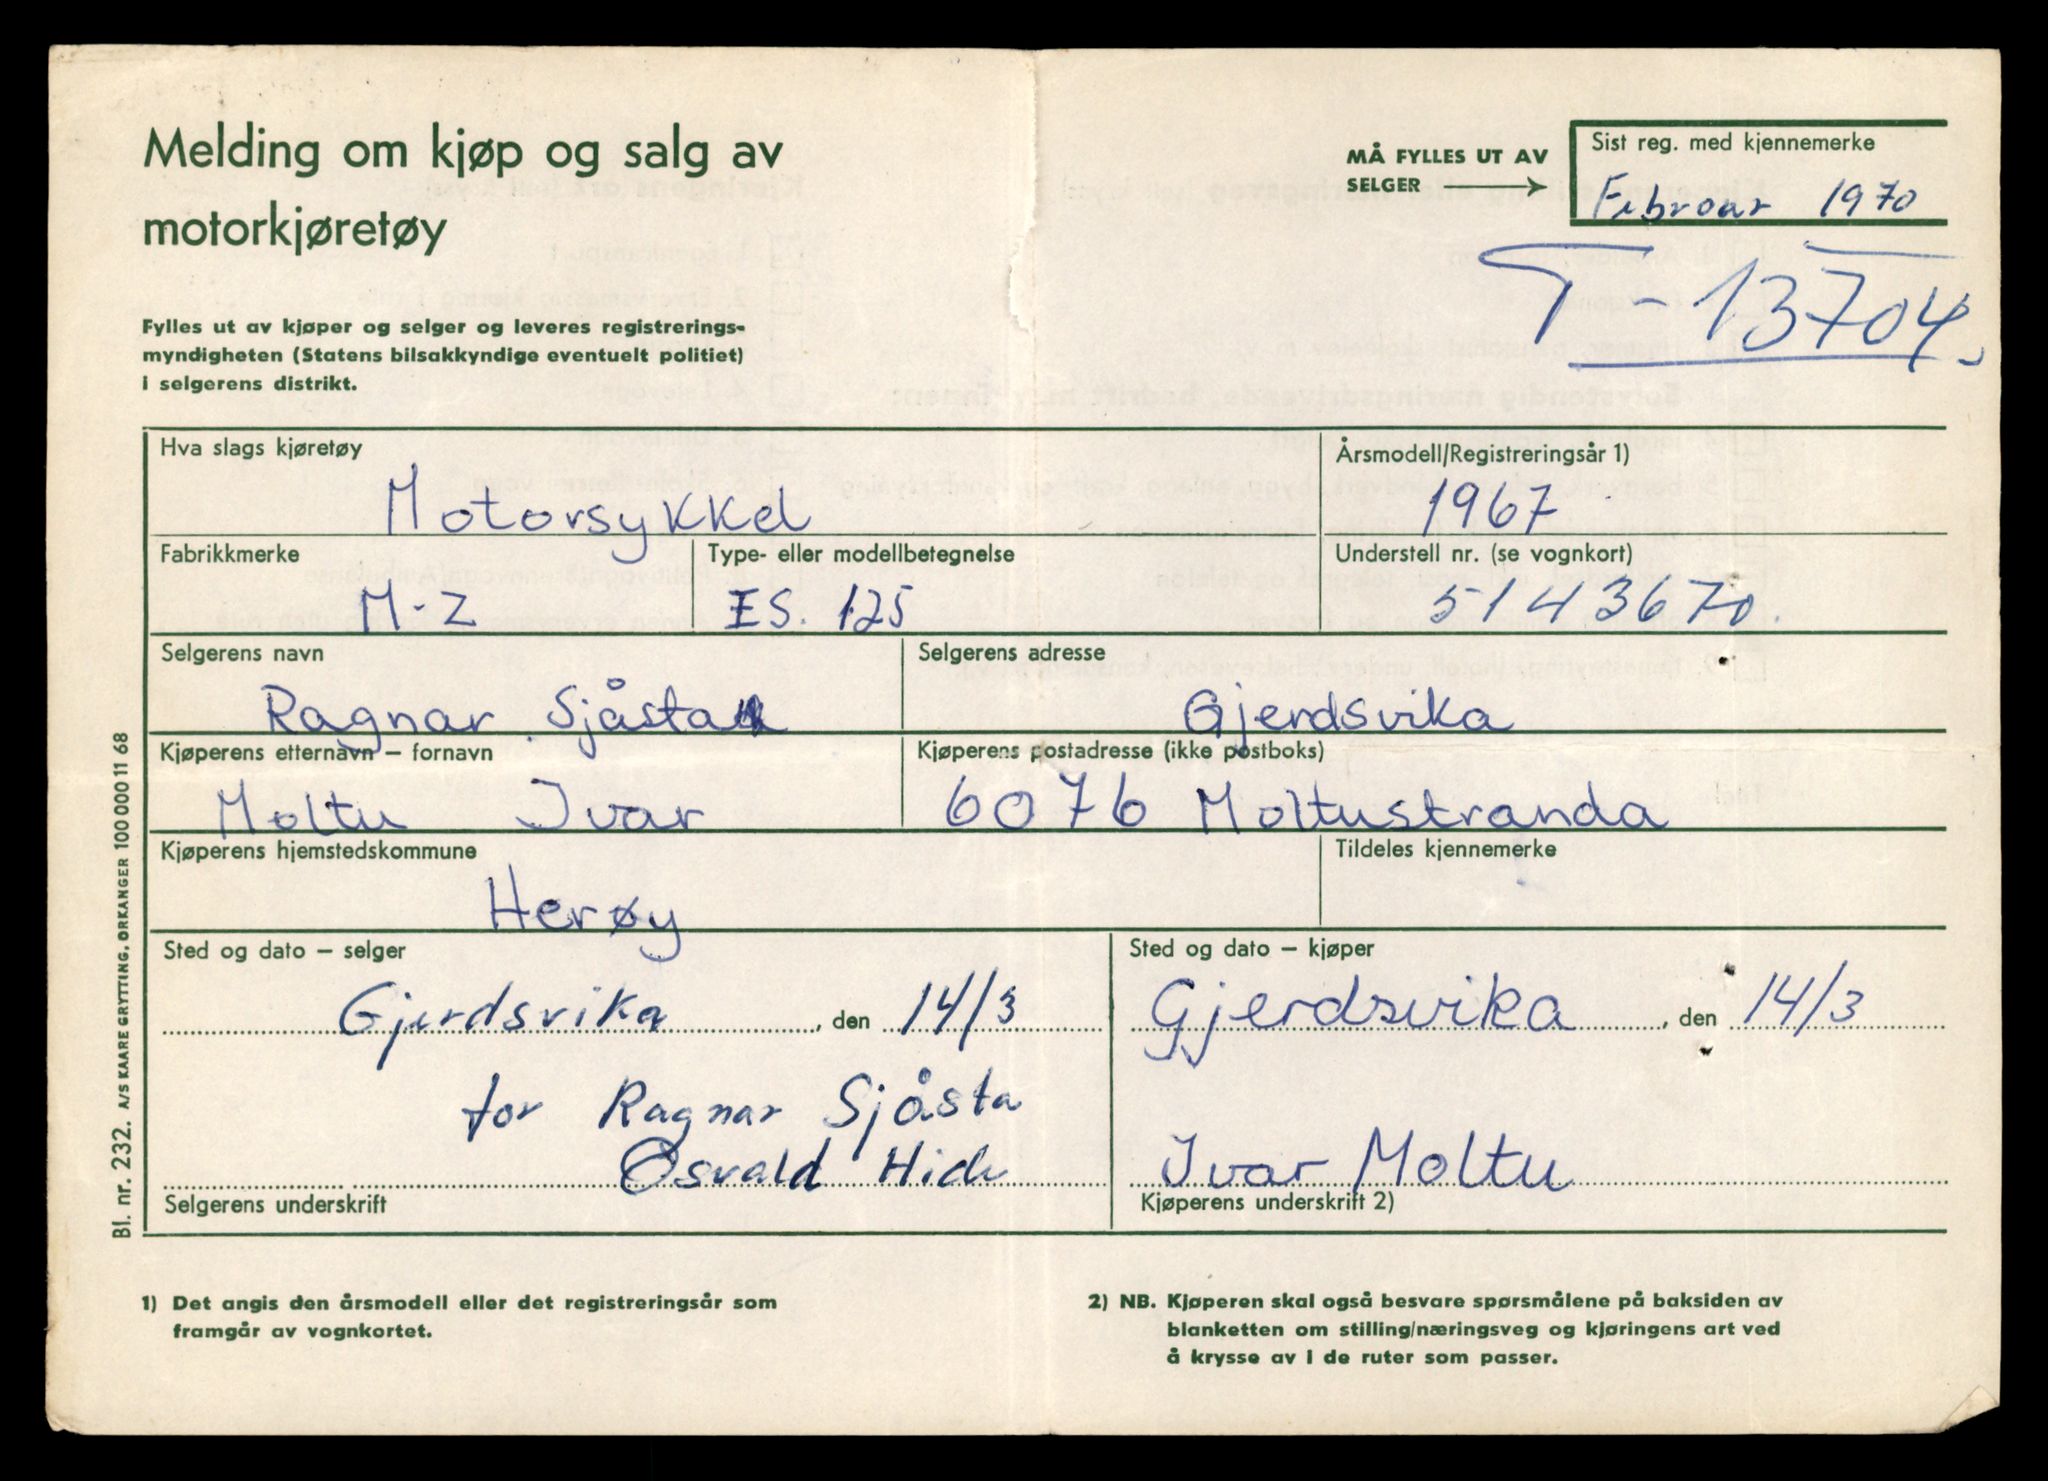 Melding om kjøp og salg av
motorkjøretøy
MÅ FYLLES UT AV
SELGER
Sist reg. med kjennemerke
Februar 1970
T-13704
Fylles ut av kjøper og selger og leveres registrerings-
myndigheten (Statens bilsakkyndige eventuelt politiet)
i selgerens distrikt.
Hva slags kjøretøy
Motorsykkel
Årsmodell/Registreringsår 1)
1967
Fabrikkmerke
M-Z
Type- eller modellbetegnelse
ES. 125
Understell nr. (se vognkort)
5143670.
Selgerens navn
Ragnar Sjåsta
Selgerens adresse
Gjerdsvika
Kjøperens etternavn – fornavn
Moltu Ivar
Kjøperens postadresse (ikke postboks)
6076 Moltustranda
Kjøperens hjemstedskommune
Herøy
Tildeles kjennemerke
Sted og dato – selger
Gjerdsvika, den 14/3
for Ragnar Sjåsta
Osvald Hide
Selgerens underskrift
Sted og dato – kjøper
Gjerdsvika, den 14/3
Ivar Moltu
Kjøperens underskrift 2)
Bl. nr. 232. A/S KAARE GRYTTING, ORKANGER 100 000 11 68
1) Det angis den årsmodell eller det registreringsår som
framgår av vognkortet.
2) NB. Kjøperen skal også besvare spørsmålene på baksiden av
blanketten om stilling/næringsveg og kjøringens art ved
å krysse av i de ruter som passer.